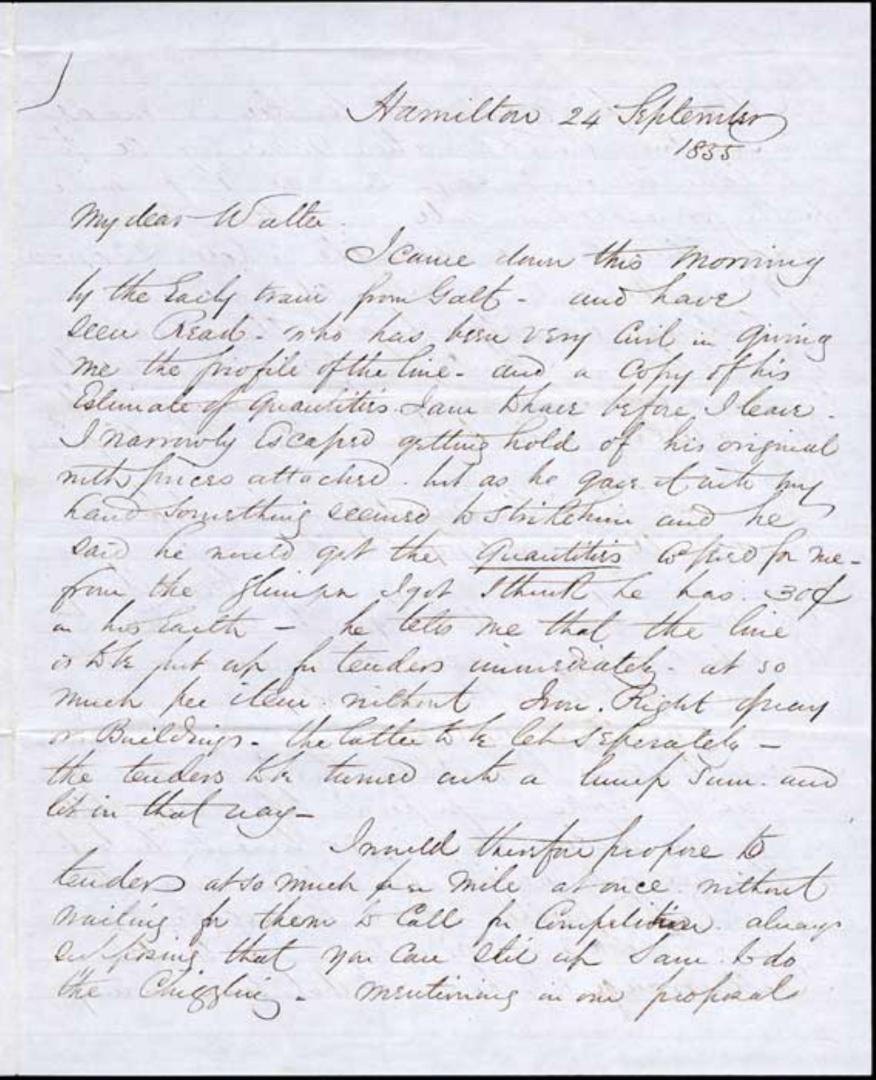 Hamilton 24 September
1855
My dear Walter.
I came down this Morning
by the Early train from Galt - and have
seen Read - who has been very Civil in giving
me the profile of the line - and a Copy of his
Estimate of Quantities I am to have before I leave -
I narrowly Escaped getting hold of his original
with prices attached - but as he gave it into my
hand something seemed to strike him and he
said he would get the Quantities copied for me -
from the glimpse I got I think he has 30¢
on his Earth - he tells me that the line
is to be put up for tenders immediately - at so
much per item without Iron. Right of way
or Buildings - the latter to be let seperately -
the tenders to be turned into a lump sum - and
let in that way -
I would therefore propose to
tender at so much per mile at once without
waiting for them to Call for Competition always
supposing that you can stir up Sam to do
the Chiggling - mentioning in our proposals